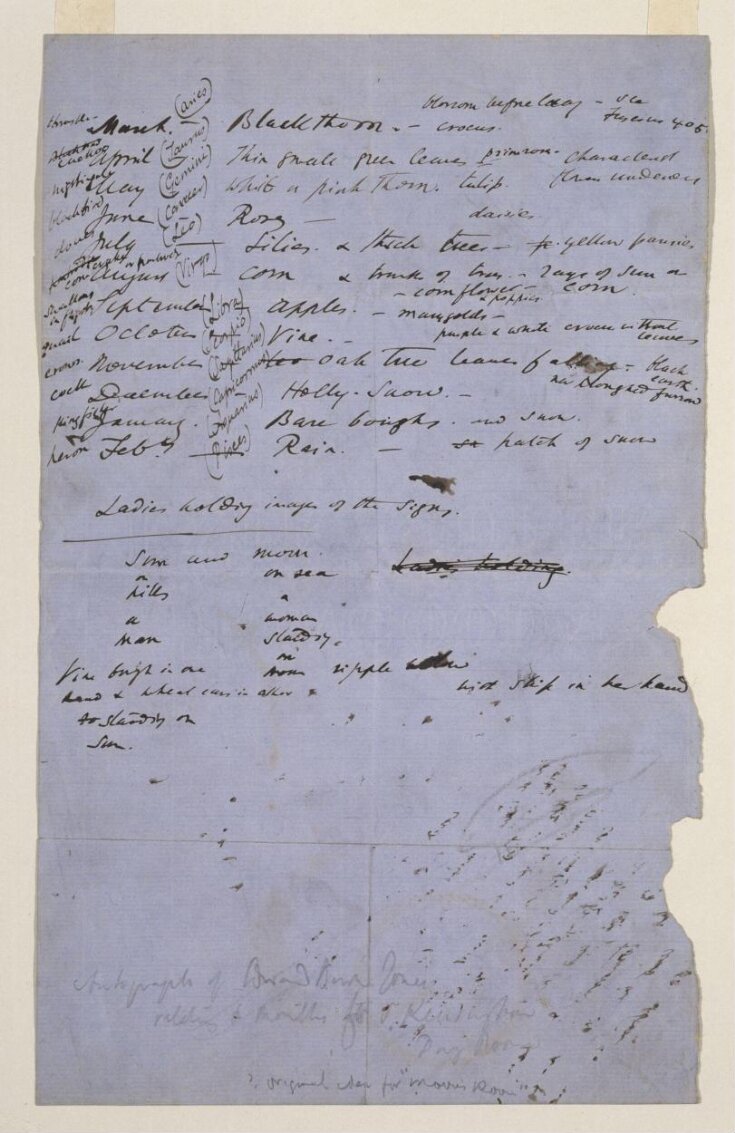 blossom before leaf - see
thrush - March. (Aries) Blackthorn. - crocus.
cuckoo April (Taurus) Thin small green leaves primrose -
nightingale May (Gemini) White or pink thorn. tulip.
blackbird June (Cancer) Roses - daisies
doves July (Leo) Lilies. & thick trees - yellow pansies
August (Virgo) corn & trunk of trees - rays of sun on corn
- cornflower & poppies
swallows in flight September (Libra) apples. - marigolds -
quail October (Scorpio) Vine. - purple & white crocus without leaves
crows November (Sagittarius) oak tree leaves falling - black earth.
new ploughed furrow
December (Capricornus) Holly. Snow. -
kingfisher January. (Aquarius) Bare boughs. no snow.
heron Feby (Pisces) Rain. - patch of snow
Ladies holding images of the signs.
Sun and moon. Ladies holding.
on on sea
hills a
a woman
man standing.
on
Vine bough in one moon ripple
hand & wheat ears in other with ship in her hand
standing on
Sun.
Autograph of Edward Burne Jones
relating to months for S. Kensington
? original idea for "Morris Room"